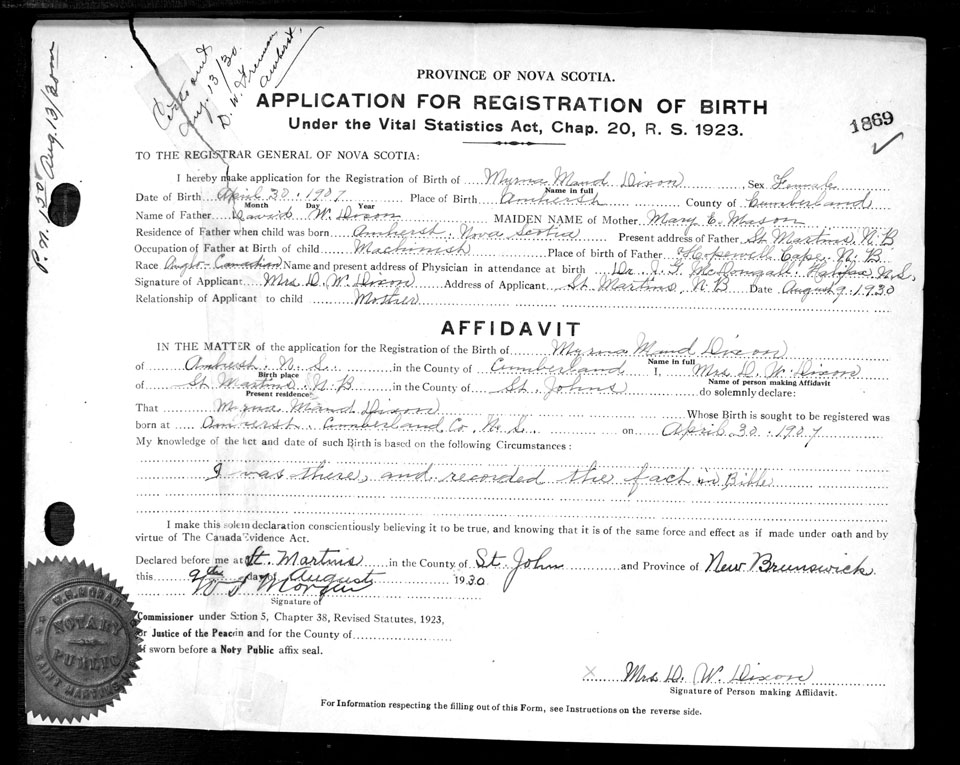 Certs sent
Aug. 13/30.
D. W. Freeman
Amherst.
P.N. 1.50 Aug. 13/30
PROVINCE OF NOVA SCOTIA.
APPLICATION FOR REGISTRATION OF BIRTH
Under the Vital Statistics Act, Chap. 20, R. S. 1923.
1869
TO THE REGISTRAR GENERAL OF NOVA SCOTIA:
I hereby make application for the Registration of Birth of Myrna Maud Dixon Sex Female
Name in full
Date of Birth April 30. 1907 Place of Birth Amherst County of Cumberland
Month Day Year
Name of Father David W. Dixon MAIDEN NAME of Mother Mary E. Mason
Residence of Father when child was born Amherst, Nova Scotia Present address of Father St Martins, N. B
Occupation of Father at Birth of child Machinist Place of birth of Father Hopewell Cape, N. B
Race Anglo-Canadian Name and present address of Physician in attendance at birth Dr. J. G. McDougall, Halifax N.S,
Signature of Applicant Mrs D. W. Dixon Address of Applicant St. Martins, N. B Date August 9. 1930
Relationship of Applicant to child Mother
AFFIDAVIT
IN THE MATTER of the application for the Registration of the Birth of Myrna Maud Dixon
Name in full
of Amherst. N. S. in the County of Cumberland I, Mrs D. W. Dixon
Birth place Name of person making Affidavit
of St Martins N. B in the County of St. Johns do solemnly declare:
Present residence
That Myrna Maud Dixon Whose Birth is sought to be registered was
born at Amherst. Cumberland Co. N. S. on April 30. 1907
My knowledge of the fact and date of such Birth is based on the following Circumstances:
I was there, and recorded the fact in Bible
I make this solem declaration conscientiously believing it to be true, and knowing that it is of the same force and effect as if made under oath and by
virtue of The Canada Evidence Act.
Declared before me at St. Martins in the County of St. John and Province of New Brunswick.
this 9th day of August 1930
Signature of
Commissioner under Section 5, Chapter 38, Revised Statutes, 1923,
or Justice of the Peace in and for the County of
If sworn before a Notry Public affix seal.
NOTARY
PUBLIC
SAINT MARTINS
X Mrs D. W. Dixon
Signature of Person making Affidavit.
For Information respecting the filling out of this Form, see Instructions on the reverse side.